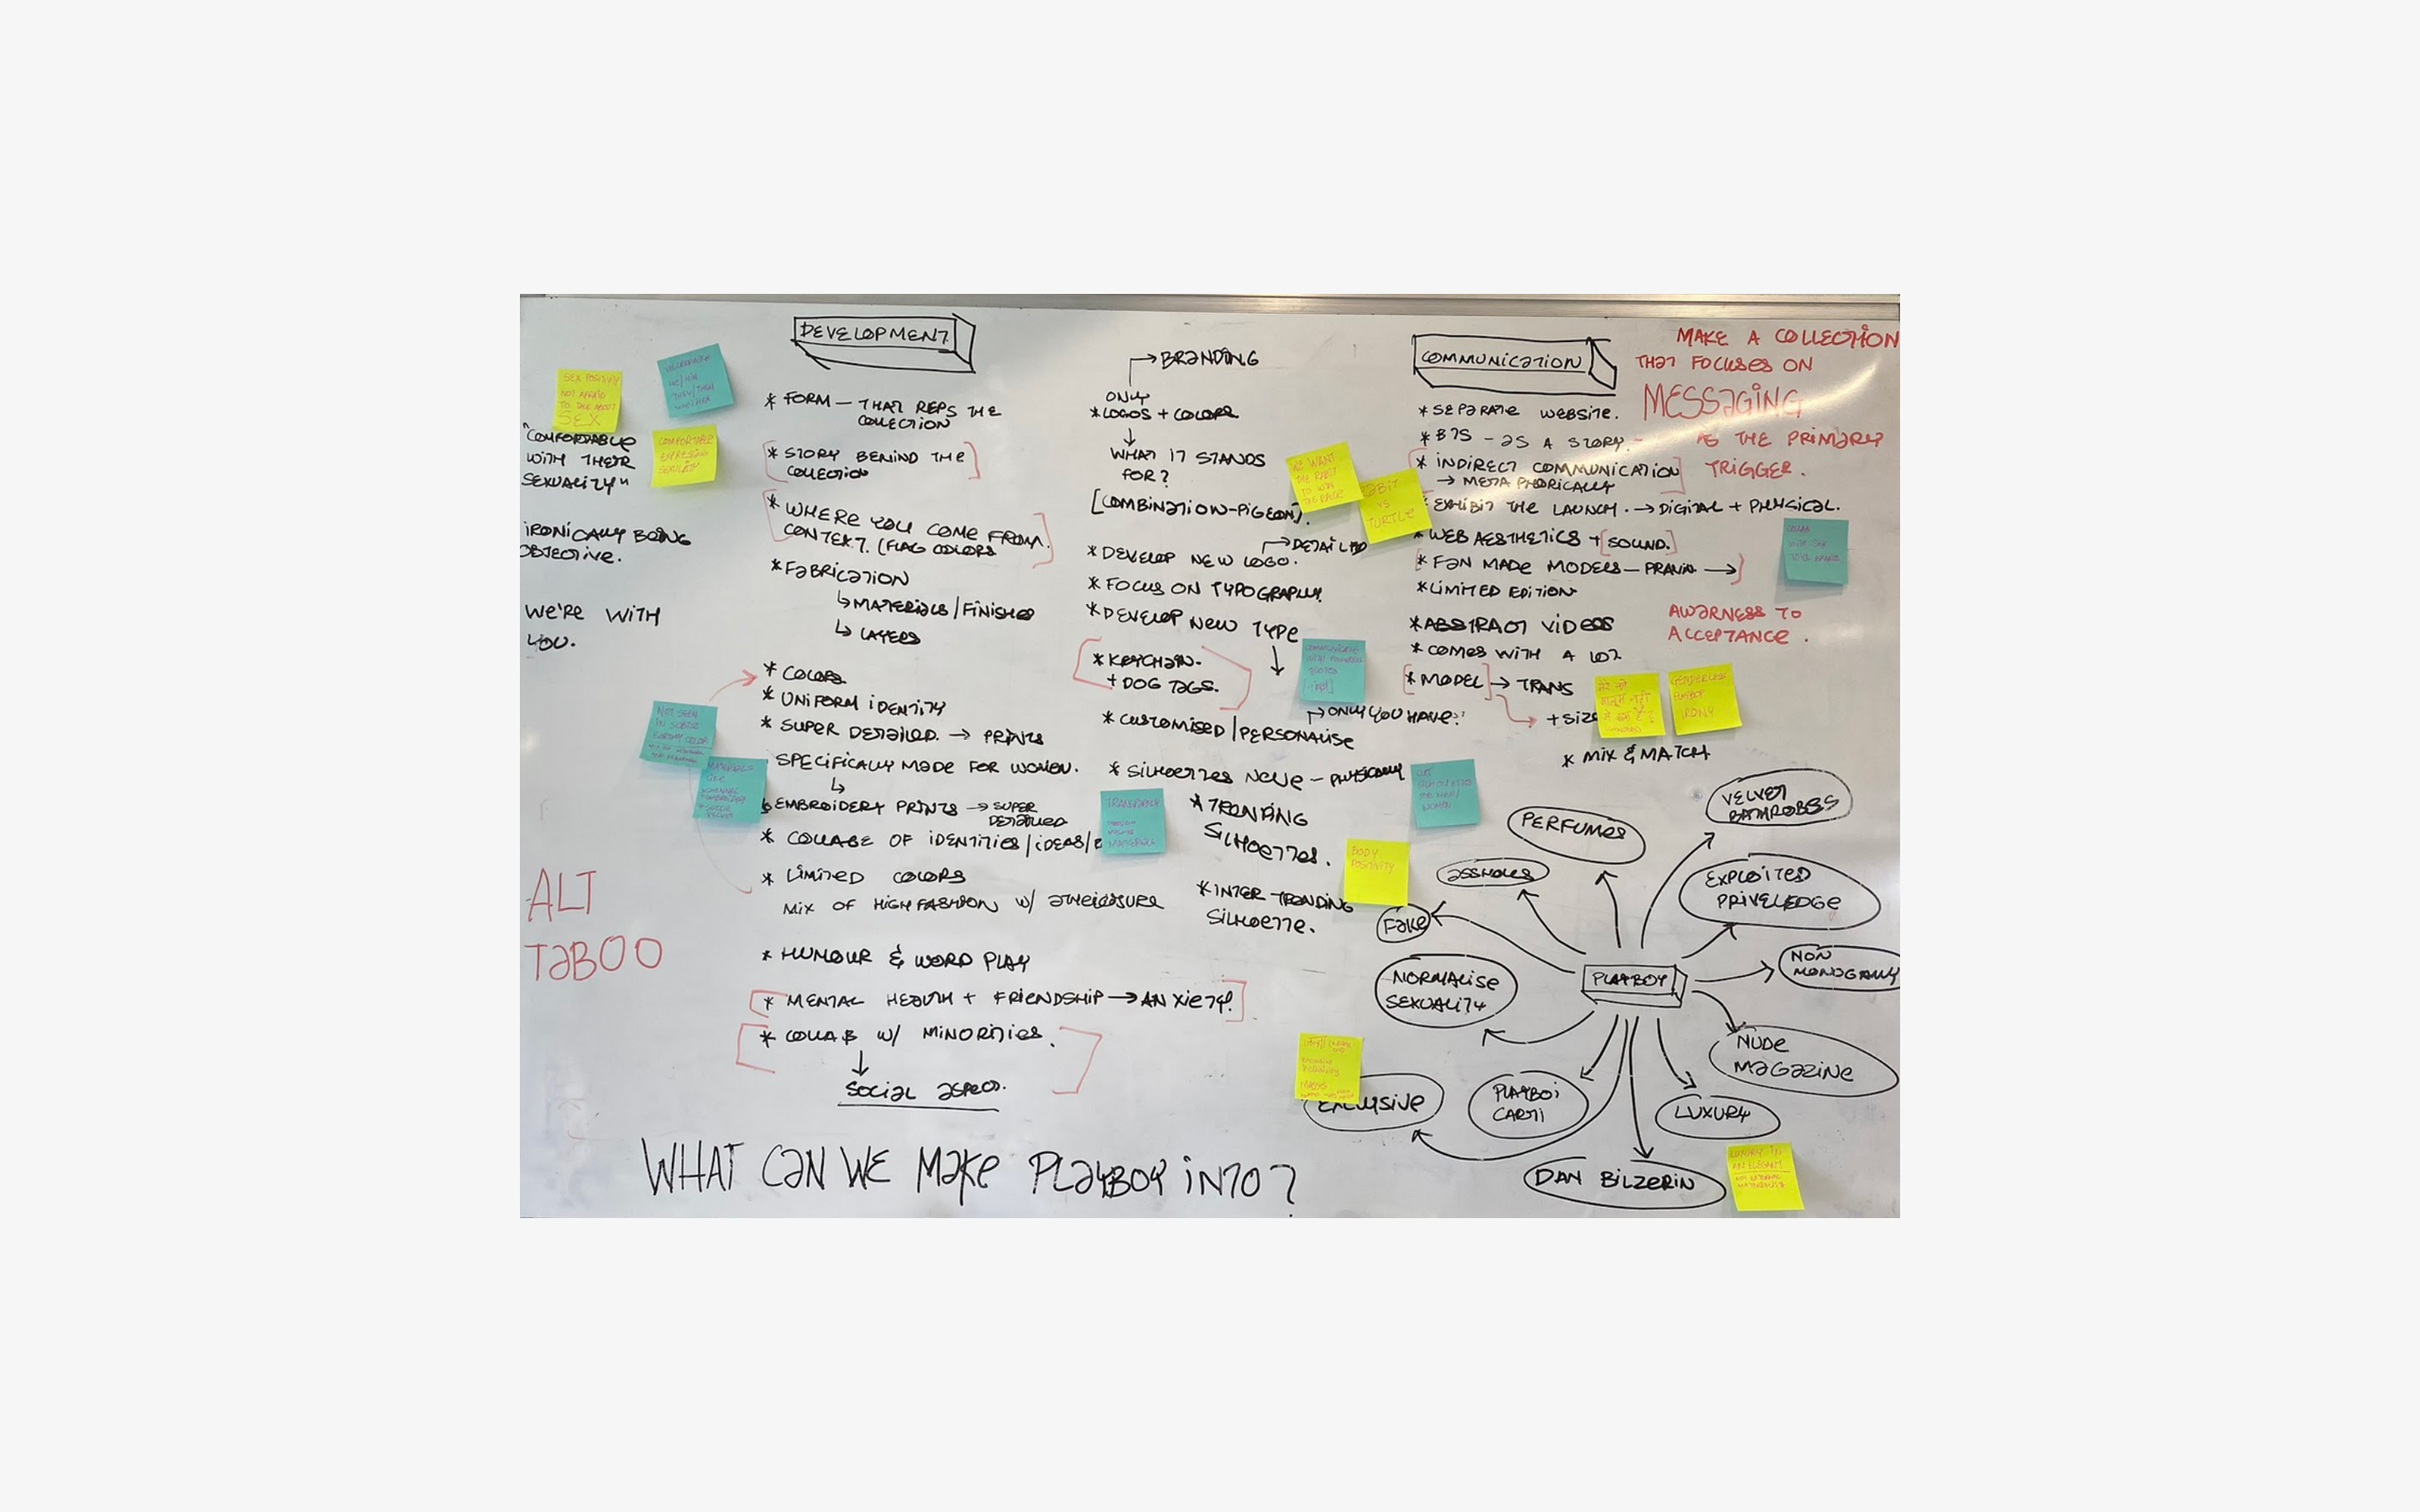 SEX POSITIVITY
NOT AFRAID
TO TALK ABOUT
SEX
"COMFORTABLE
WITH THEIR
SEXUALITY"
COMFORTABLE
IRONICALLY BEING
OBJECTIVE.
WE'RE WITH
YOU.
ALT
TABOO
DEVELOPMENT
* FORM — THAT REPS THE
COLLECTION
* STORY BEHIND THE
COLLECTION
* WHERE YOU COME FROM.
CONTEXT. (FLAG COLORS
* FABRICATION
↳ MATERIALS/FINISHED
↳ LAYERS
* COLORS
* UNIFORM IDENTITY
* SUPER DETAILED. → PRINTS
SPECIFICALLY MADE FOR WOMEN.
↳
EMBROIDERY PRINTS → SUPER
DETAILED
* COLLAGE OF IDENTITIES/IDEAS/
* LIMITED COLORS
MIX OF HIGH FASHION W/ ATHELEISURE
* HUMOUR & WORD PLAY
* MENTAL HEALTH + FRIENDSHIP → ANXIETY!
* COLLAB W/ MINORITIES.
SOCIAL ASPECT.
NOT SEEN
MATERIALS
LIKE
VELVET
→ BRANDING
ONLY
* LOGOS + COLORS
WHAT IT STANDS
FOR?
[COMBINATION-PIGEON].
WE WANT
THE RABIT
TO WIN
THE RACE
RABIT
VS
TURTLE
→ DETAILED
* DEVELOP NEW LOGO.
* FOCUS ON TYPOGRAPHY.
* DEVELOP NEW TYPE
* KEYCHAIN.
+ DOG TAGS.
→ ONLY YOU HAVE!
* CUSTOMISED/PERSONALISE
* SILHOETTES NCUE — PHYSICALLY
* TRENDING
SILHOETTES.
* INTER TRENDING
SILHOETTE.
BODY
POSITIVITY
COMMUNICATION
* SEPARATE WEBSITE.
* BTS - AS A STORY.
* INDIRECT COMMUNICATION
→ METAPHORICALLY
* EXHIBIT THE LAUNCH. → DIGITAL + PHYSICAL.
* WEB AESTHETICS + [SOUND.]
* FAN MADE MODELS — PRANAV →
* LIMITED EDITION
* ABSTRACT VIDEOS
* COMES WITH A LOT
* MODEL → TRANS
+ SIZE
* MIX & MATCH
GENDERLESS
PLAYBOY
IRONY
MAKE A COLLECTION
THAT FOCUSES ON
MESSAGING
AS THE PRIMARY
TRIGGER.
AWARNESS TO
ACCEPTANCE.
PLAYBOY
VELVET
BATHROBES
PERFUMES
ASSHOLES
FAKE
EXPLOITED
PRIVELEDGE
NON
MONOGAMY
NORMALISE
SEXUALITY
NUDE
MAGAZINE
EXCLUSIVE
PLAYBOI
CARTI
LUXURY
DAN BILZERIN
LUXURY IN
AN ELEGANT
WHAT CAN WE MAKE PLAYBOY INTO?